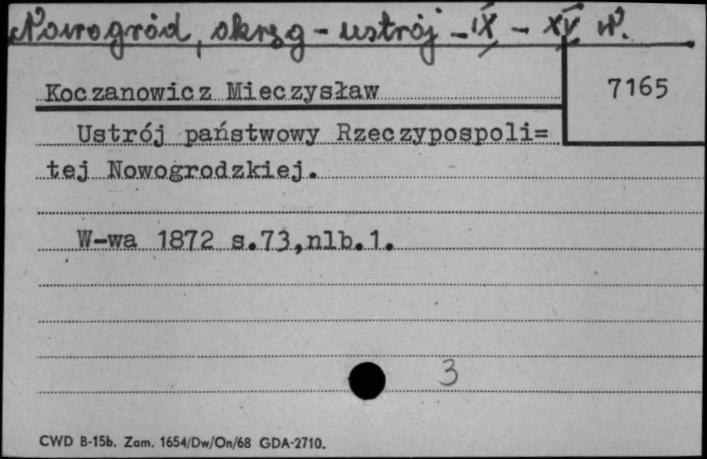 Nowogród, okręg - ustrój - IX - XV w.
7165
Koczanowicz Mieczysław
Ustrój państwowy Rzeczypospoli=
tej Nowogrodzkiej.
W-wa 1872 s.73,nlb.1.
3
CWD B-15b. Zam. 1654/Dw/On/68 GDA-2710.